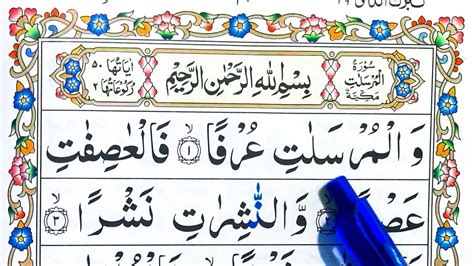 سُوْرَةُ الْمُرْسَلٰتِ مَكِّيَّةٌ
بِسْمِ اللّٰهِ الرَّحْمٰنِ الرَّحِیْمِ
اٰیَاتُهَا ۵۰ رُكُوْعَاتُهَا ۲
وَ الْمُرْسَلٰتِ عُرْفًا ۙ۱ فَالْعٰصِفٰتِ
عَصْ وَّ النّٰشِرٰتِ نَشْرًا ۙ۳